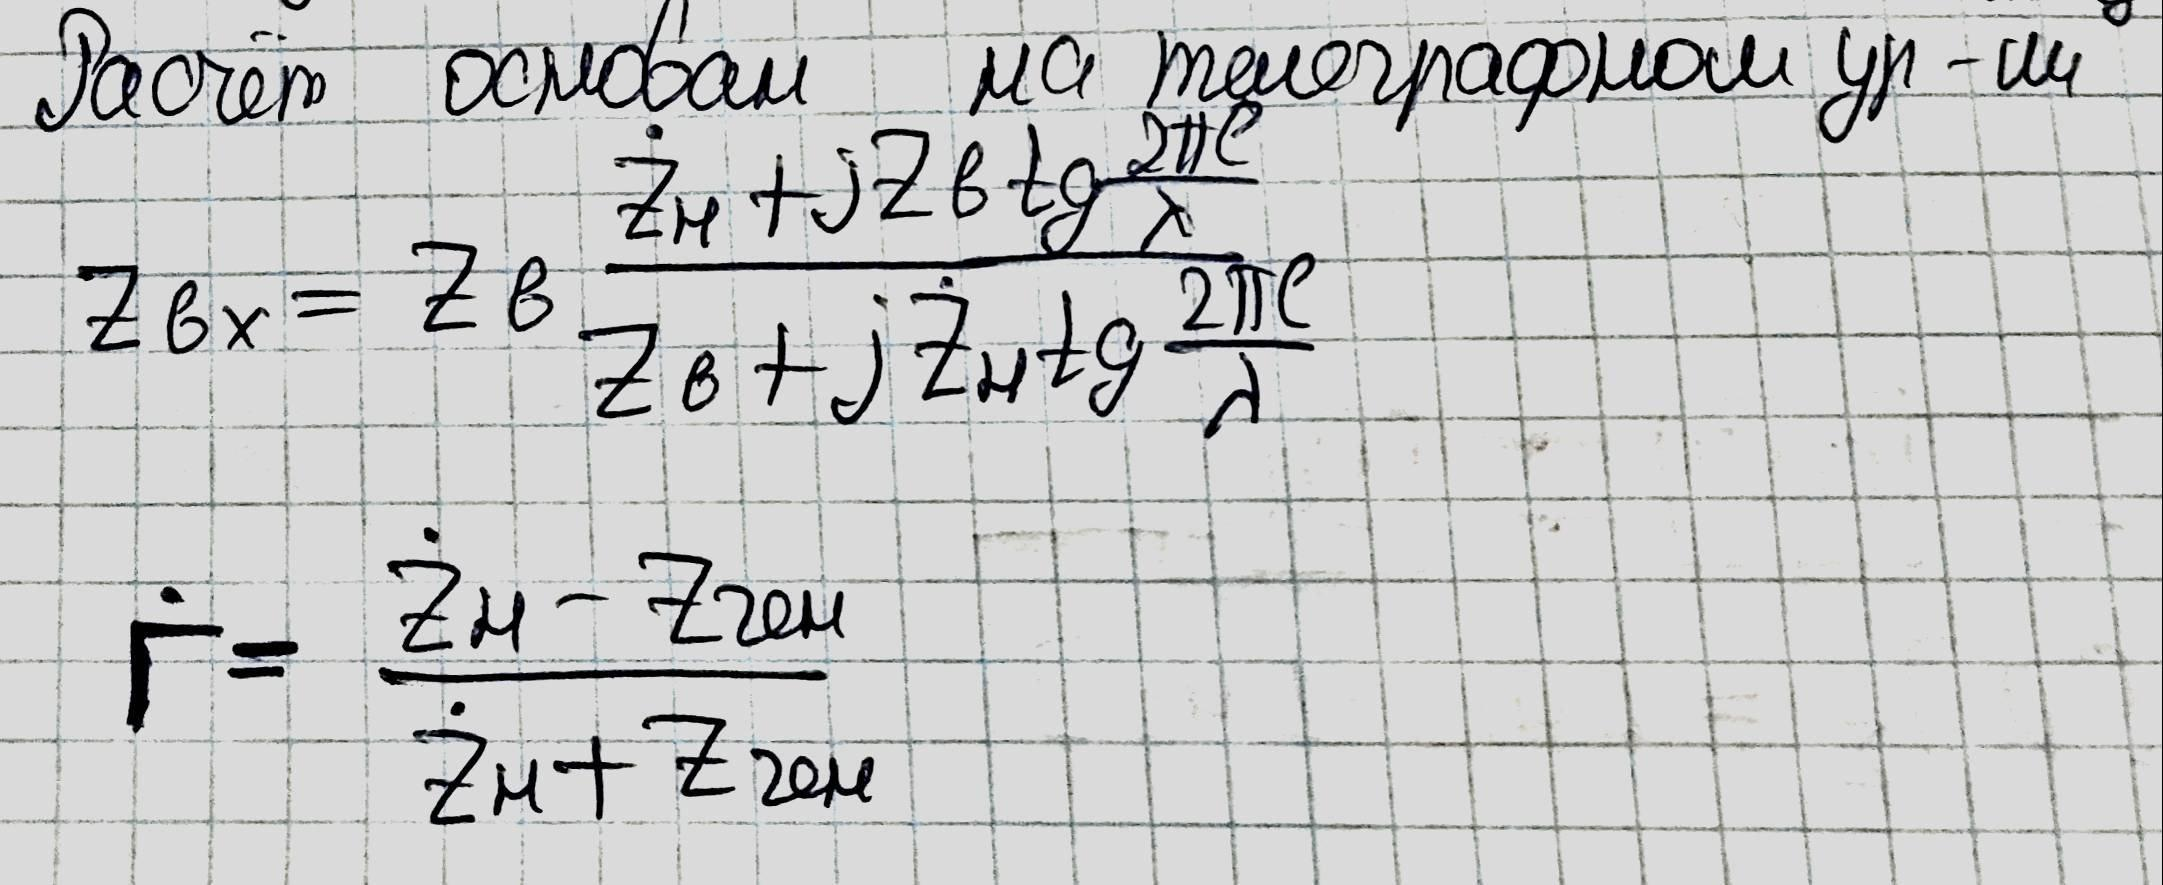 Расчёт основан на телеграфном ур-ии
Zвх = Zв (Żн + jZв tg 2πl/λ) / (Zв + jŻн tg 2πl/λ)
Γ̇ = (Żн − Zген) / (Żн + Zген)